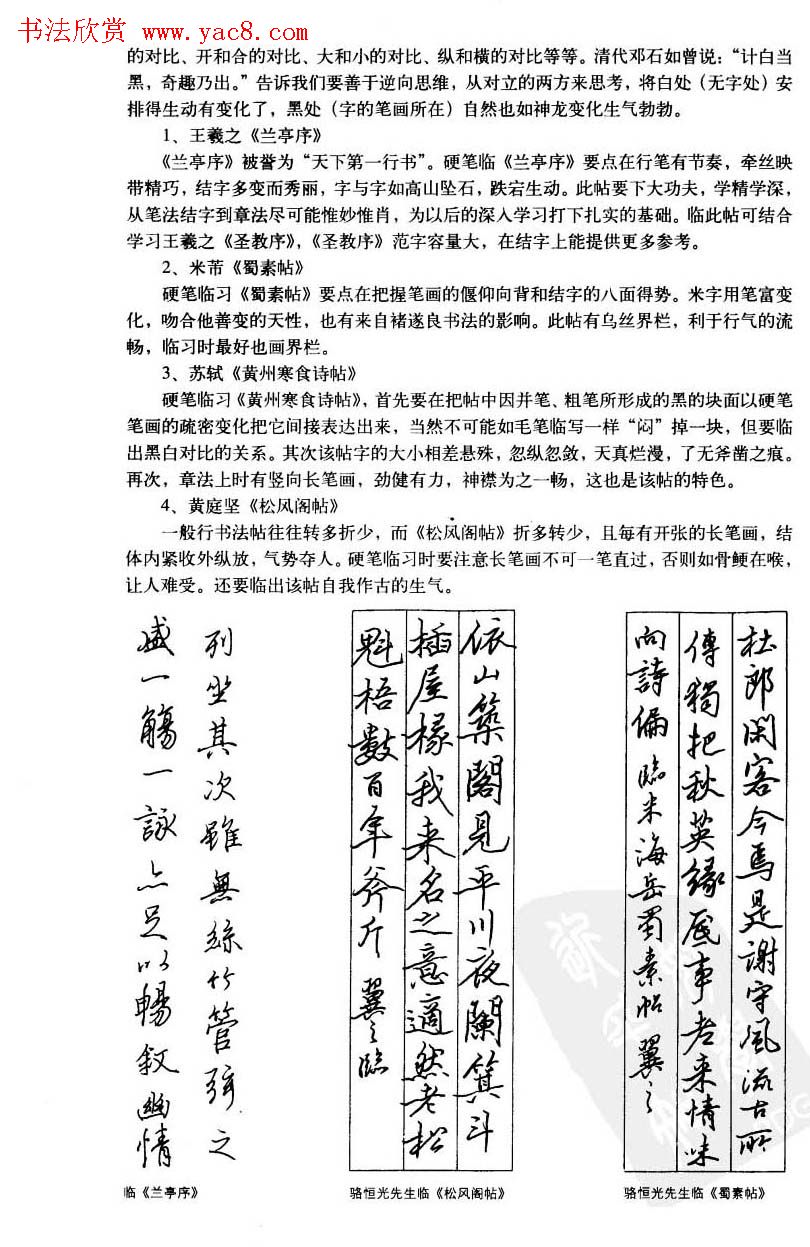 书法欣赏 www.yac8.com
的对比、开和合的对比、大和小的对比、纵和横的对比等等。清代邓石如曾说：“计白当
黑，奇趣乃出。”告诉我们要善于逆向思维，从对立的两方来思考，将白处（无字处）安
排得生动有变化了，黑处（字的笔画所在）自然也如神龙变化生气勃勃。
1、王羲之《兰亭序》
《兰亭序》被誉为“天下第一行书”。硬笔临《兰亭序》要点在行笔有节奏，牵丝映
带精巧，结字多变而秀丽，字与字如高山坠石，跌宕生动。此帖要下大功夫，学精学深，
从笔法结字到章法尽可能惟妙惟肖，为以后的深入学习打下扎实的基础。临此帖可结合
学习王羲之《圣教序》，《圣教序》范字容量大，在结字上能提供更多参考。
2、米芾《蜀素帖》
硬笔临习《蜀素帖》要点在把握笔画的偃仰向背和结字的八面得势。米字用笔富变
化，吻合他善变的天性，也有来自褚遂良书法的影响。此帖有乌丝界栏，利于行气的流
畅，临习时最好也画界栏。
3、苏轼《黄州寒食诗帖》
硬笔临习《黄州寒食诗帖》，首先要在把帖中因并笔、粗笔所形成的黑的块面以硬笔
笔画的疏密变化把它间接表达出来，当然不可能如毛笔临写一样“闷”掉一块，但要临
出黑白对比的关系。其次该帖字的大小相差悬殊，忽纵忽敛，天真烂漫，了无斧凿之痕。
再次，章法上时有竖向长笔画，劲健有力，神襟为之一畅，这也是该帖的特色。
4、黄庭坚《松风阁帖》
一般行书法帖往往转多折少，而《松风阁帖》折多转少，且每有开张的长笔画，结
体内紧收外纵放，气势夺人。硬笔临习时要注意长笔画不可一笔直过，否则如骨鲠在喉，
让人难受。还要临出该帖自我作古的生气。
列坐其次雖無絲竹管弦之
盛一觴一詠亦足以暢叙幽情
临《兰亭序》
依山築閣見平川夜闌箕斗
插屋椽我来名之意適然老松
魁梧數百年斧斤翼之臨
骆恒光先生临《松风阁帖》
杜郎閑客今焉是謝守風流古所
傳獨把秋英緣底事老来情味
向詩偏臨米海岳蜀素帖翼之
骆恒光先生临《蜀素帖》